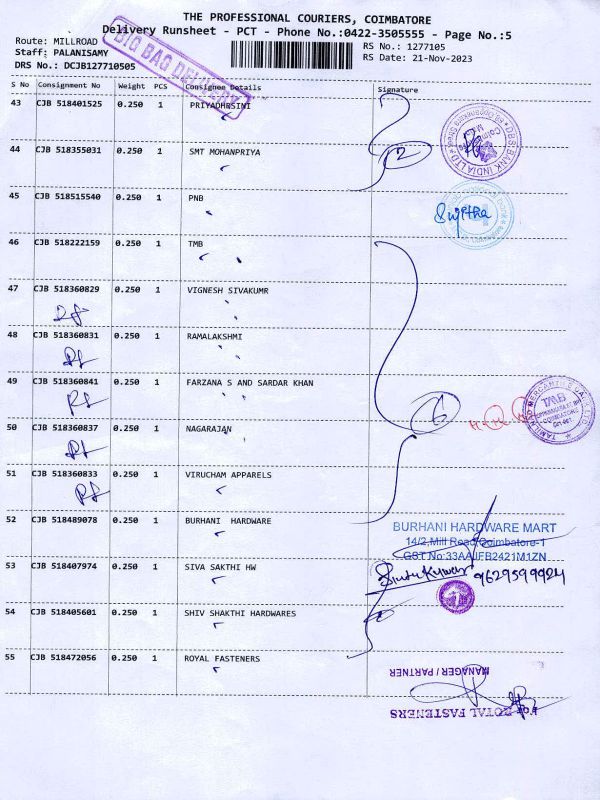 THE PROFESSIONAL COURIERS, COIMBATORE
Delivery Runsheet - PCT - Phone No.:0422-3505555 - Page No.:5
Route: MILLROAD
RS No.: 1277105
Staff: PALANISAMY
RS Date: 21-Nov-2023
DRS No.: DCJB127710505
BIG BAG DELIVERY
S No Consignment No Weight PCS Consignee Details Signature
43 CJB 518401525 0.250 1 PRIYADHESINI
44 CJB 518355031 0.250 1 SMT MOHANPRIYA
2
DBS BANK INDIA LTD
45 CJB 518515540 0.250 1 PNB
Sujitha
46 CJB 518222159 0.250 1 TMB
47 CJB 518360829 0.250 1 VIGNESH SIVAKUMR
48 CJB 518360831 0.250 1 RAMALAKSHMI
49 CJB 518360841 0.250 1 FARZANA S AND SARDAR KHAN
6
TAMILNAD MERCANTILE BANK LTD
TMB
50 CJB 518360837 0.250 1 NAGARAJAN
51 CJB 518360833 0.250 1 VIRUCHAM APPARELS
52 CJB 518489078 0.250 1 BURHANI HARDWARE
BURHANI HARDWARE MART
14/2,Mill Road,Coimbatore-1
GST No:33AAIFB2421M1ZN
53 CJB 518407974 0.250 1 SIVA SAKTHI HW
9629599924
54 CJB 518405601 0.250 1 SHIV SHAKTHI HARDWARES
55 CJB 518472056 0.250 1 ROYAL FASTENERS
MANAGER / PARTNER
For ROYAL FASTENERS